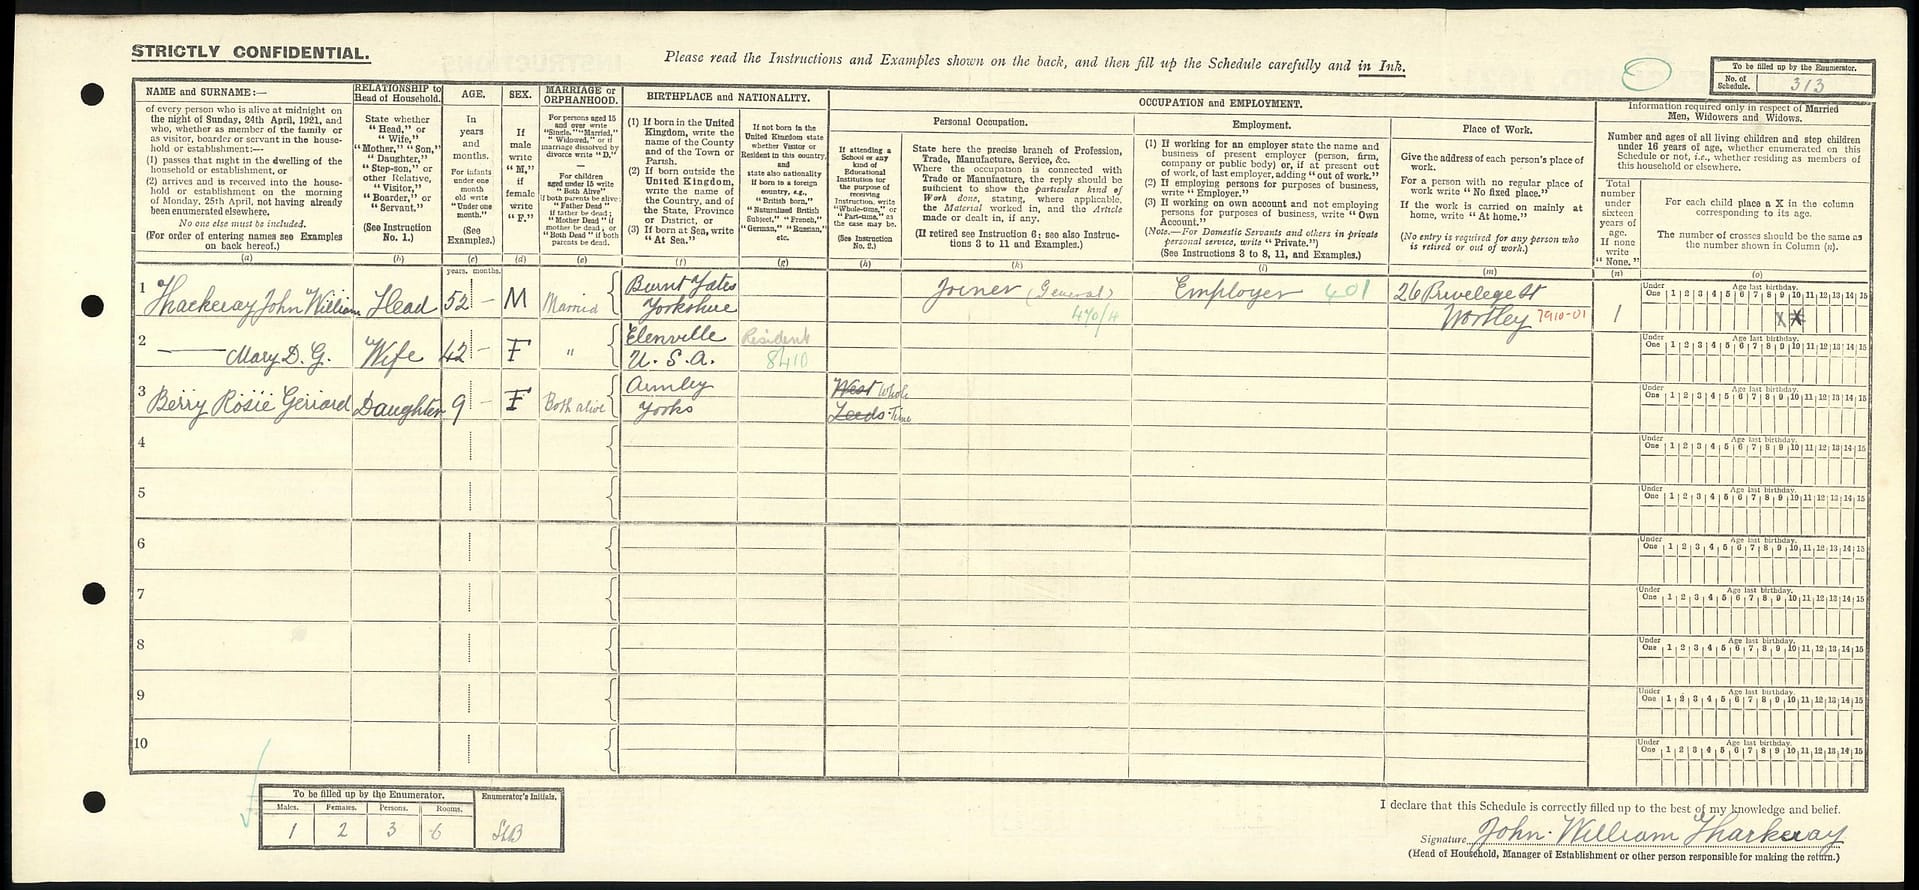 STRICTLY CONFIDENTIAL.
Please read the Instructions and Examples shown on the back, and then fill up the Schedule carefully and in Ink.
To be filled up by the Enumerator.
No. of Schedule. 313
NAME and SURNAME:—
of every person who is alive at midnight on
the night of Sunday, 24th April, 1921, and
who, whether as member of the family or
as visitor, boarder or servant in the house-
hold or establishment:—
(1) passes that night in the dwelling of the
household or establishment, or
(2) arrives and is received into the house-
hold or establishment on the morning
of Monday, 25th April, not having already
been enumerated elsewhere.
No one else must be included.
(For order of entering names see Examples
on back hereof.)
(a)
RELATIONSHIP to
Head of Household.
State whether
"Head," or
"Wife,"
"Mother," "Son,"
"Daughter,"
"Step-son," or
other Relative,
"Visitor,"
"Boarder," or
"Servant."
(See Instruction
No. 1.)
(b)
AGE.
In
years
and
months.
For infants
under one
month
old write
"Under one
month."
(See
Examples.)
(c)
years. months.
SEX.
If
male
write
"M,"
if
female
write
"F."
(d)
MARRIAGE or
ORPHANHOOD.
For persons aged 15
and over write
"Single," "Married,"
"Widowed," or if
marriage dissolved by
divorce write "D."
For children
aged under 15 write
if both parents be alive
"Both Alive"
"Father Dead"
if father be dead;
"Mother Dead" if
mother be dead, or
"Both Dead" if both
parents be dead.
(e)
BIRTHPLACE and NATIONALITY.
(1) If born in the United
Kingdom, write the
name of the County
and of the Town or
Parish.
(2) If born outside the
United Kingdom,
write the name of
the Country, and of
the State, Province
or District, or
(3) If born at Sea, write
"At Sea."
(f)
If not born in the
United Kingdom state
whether Visitor or
Resident in this country,
and
state also nationality
if born in a foreign
country, e.g.,
"British born,"
"Naturalised British
Subject," "French,"
"German," "Russian,"
etc.
(g)
OCCUPATION and EMPLOYMENT.
Personal Occupation.
If attending a
School or any
kind of
Educational
Institution for
the purpose of
receiving
Instruction, write
"Whole-time," or
"Part-time," as
the case may be.
(See Instruction
No. 2.)
(h)
State here the precise branch of Profession,
Trade, Manufacture, Service, &c.
Where the occupation is connected with
Trade or Manufacture, the reply should be
sufficient to show the particular kind of
Work done, stating, where applicable,
the Material worked in, and the Article
made or dealt in, if any.
(If retired see Instruction 6; see also Instruc-
tions 3 to 11 and Examples.)
(k)
Employment.
(1) If working for an employer state the name and
business of present employer (person, firm,
company or public body) or, if at present out
of work, of last employer, adding "out of work."
(2) If employing persons for purposes of business,
write "Employer."
(3) If working on own account and not employing
persons for purposes of business, write "Own
Account."
(Note.—For Domestic Servants and others in private
personal service, write "Private.")
(See Instructions 3 to 8, 11, and Examples.)
(l)
Place of Work.
Give the address of each person's place of
work.
For a person with no regular place of
work write "No fixed place."
If the work is carried on mainly at
home, write "At home."
(No entry is required for any person who
is retired or out of work.)
(m)
Information required only in respect of Married
Men, Widowers and Widows.
Number and ages of all living children and step children
under 16 years of age, whether enumerated on this
Schedule or not, i.e., whether residing as members of
this household or elsewhere.
Total
number
under
sixteen
years of
age.
If none
write
"None."
(n)
For each child place a X in the column
corresponding to its age.
The number of crosses should be the same as
the number shown in Column (n).
(o)
1 Thackeray John William Head 52 – M Married Burnt Yates Yorkshire Joiner (General) 470/4 Employer 401 26 Privelege St Wortley 7910-01 1
Under One Age last birthday. 1 2 3 4 5 6 7 8 9 10 11 12 13 14 15
X X
2 —— Mary D. G. Wife 42 – F " Elenville U. S. A. Resident 8410
Under One Age last birthday. 1 2 3 4 5 6 7 8 9 10 11 12 13 14 15
3 Berry Rosie Gerrard Daughter 9 – F Both alive Armley Yorks West Leeds Whole Time
Under One Age last birthday. 1 2 3 4 5 6 7 8 9 10 11 12 13 14 15
4
Under One Age last birthday. 1 2 3 4 5 6 7 8 9 10 11 12 13 14 15
5
Under One Age last birthday. 1 2 3 4 5 6 7 8 9 10 11 12 13 14 15
6
Under One Age last birthday. 1 2 3 4 5 6 7 8 9 10 11 12 13 14 15
7
Under One Age last birthday. 1 2 3 4 5 6 7 8 9 10 11 12 13 14 15
8
Under One Age last birthday. 1 2 3 4 5 6 7 8 9 10 11 12 13 14 15
9
Under One Age last birthday. 1 2 3 4 5 6 7 8 9 10 11 12 13 14 15
10
Under One Age last birthday. 1 2 3 4 5 6 7 8 9 10 11 12 13 14 15
To be filled up by the Enumerator.
Males. Females. Persons. Rooms.
1 2 3 6
Enumerator's Initials.
I declare that this Schedule is correctly filled up to the best of my knowledge and belief.
Signature John William Thackeray
(Head of Household, Manager of Establishment or other person responsible for making the return.)